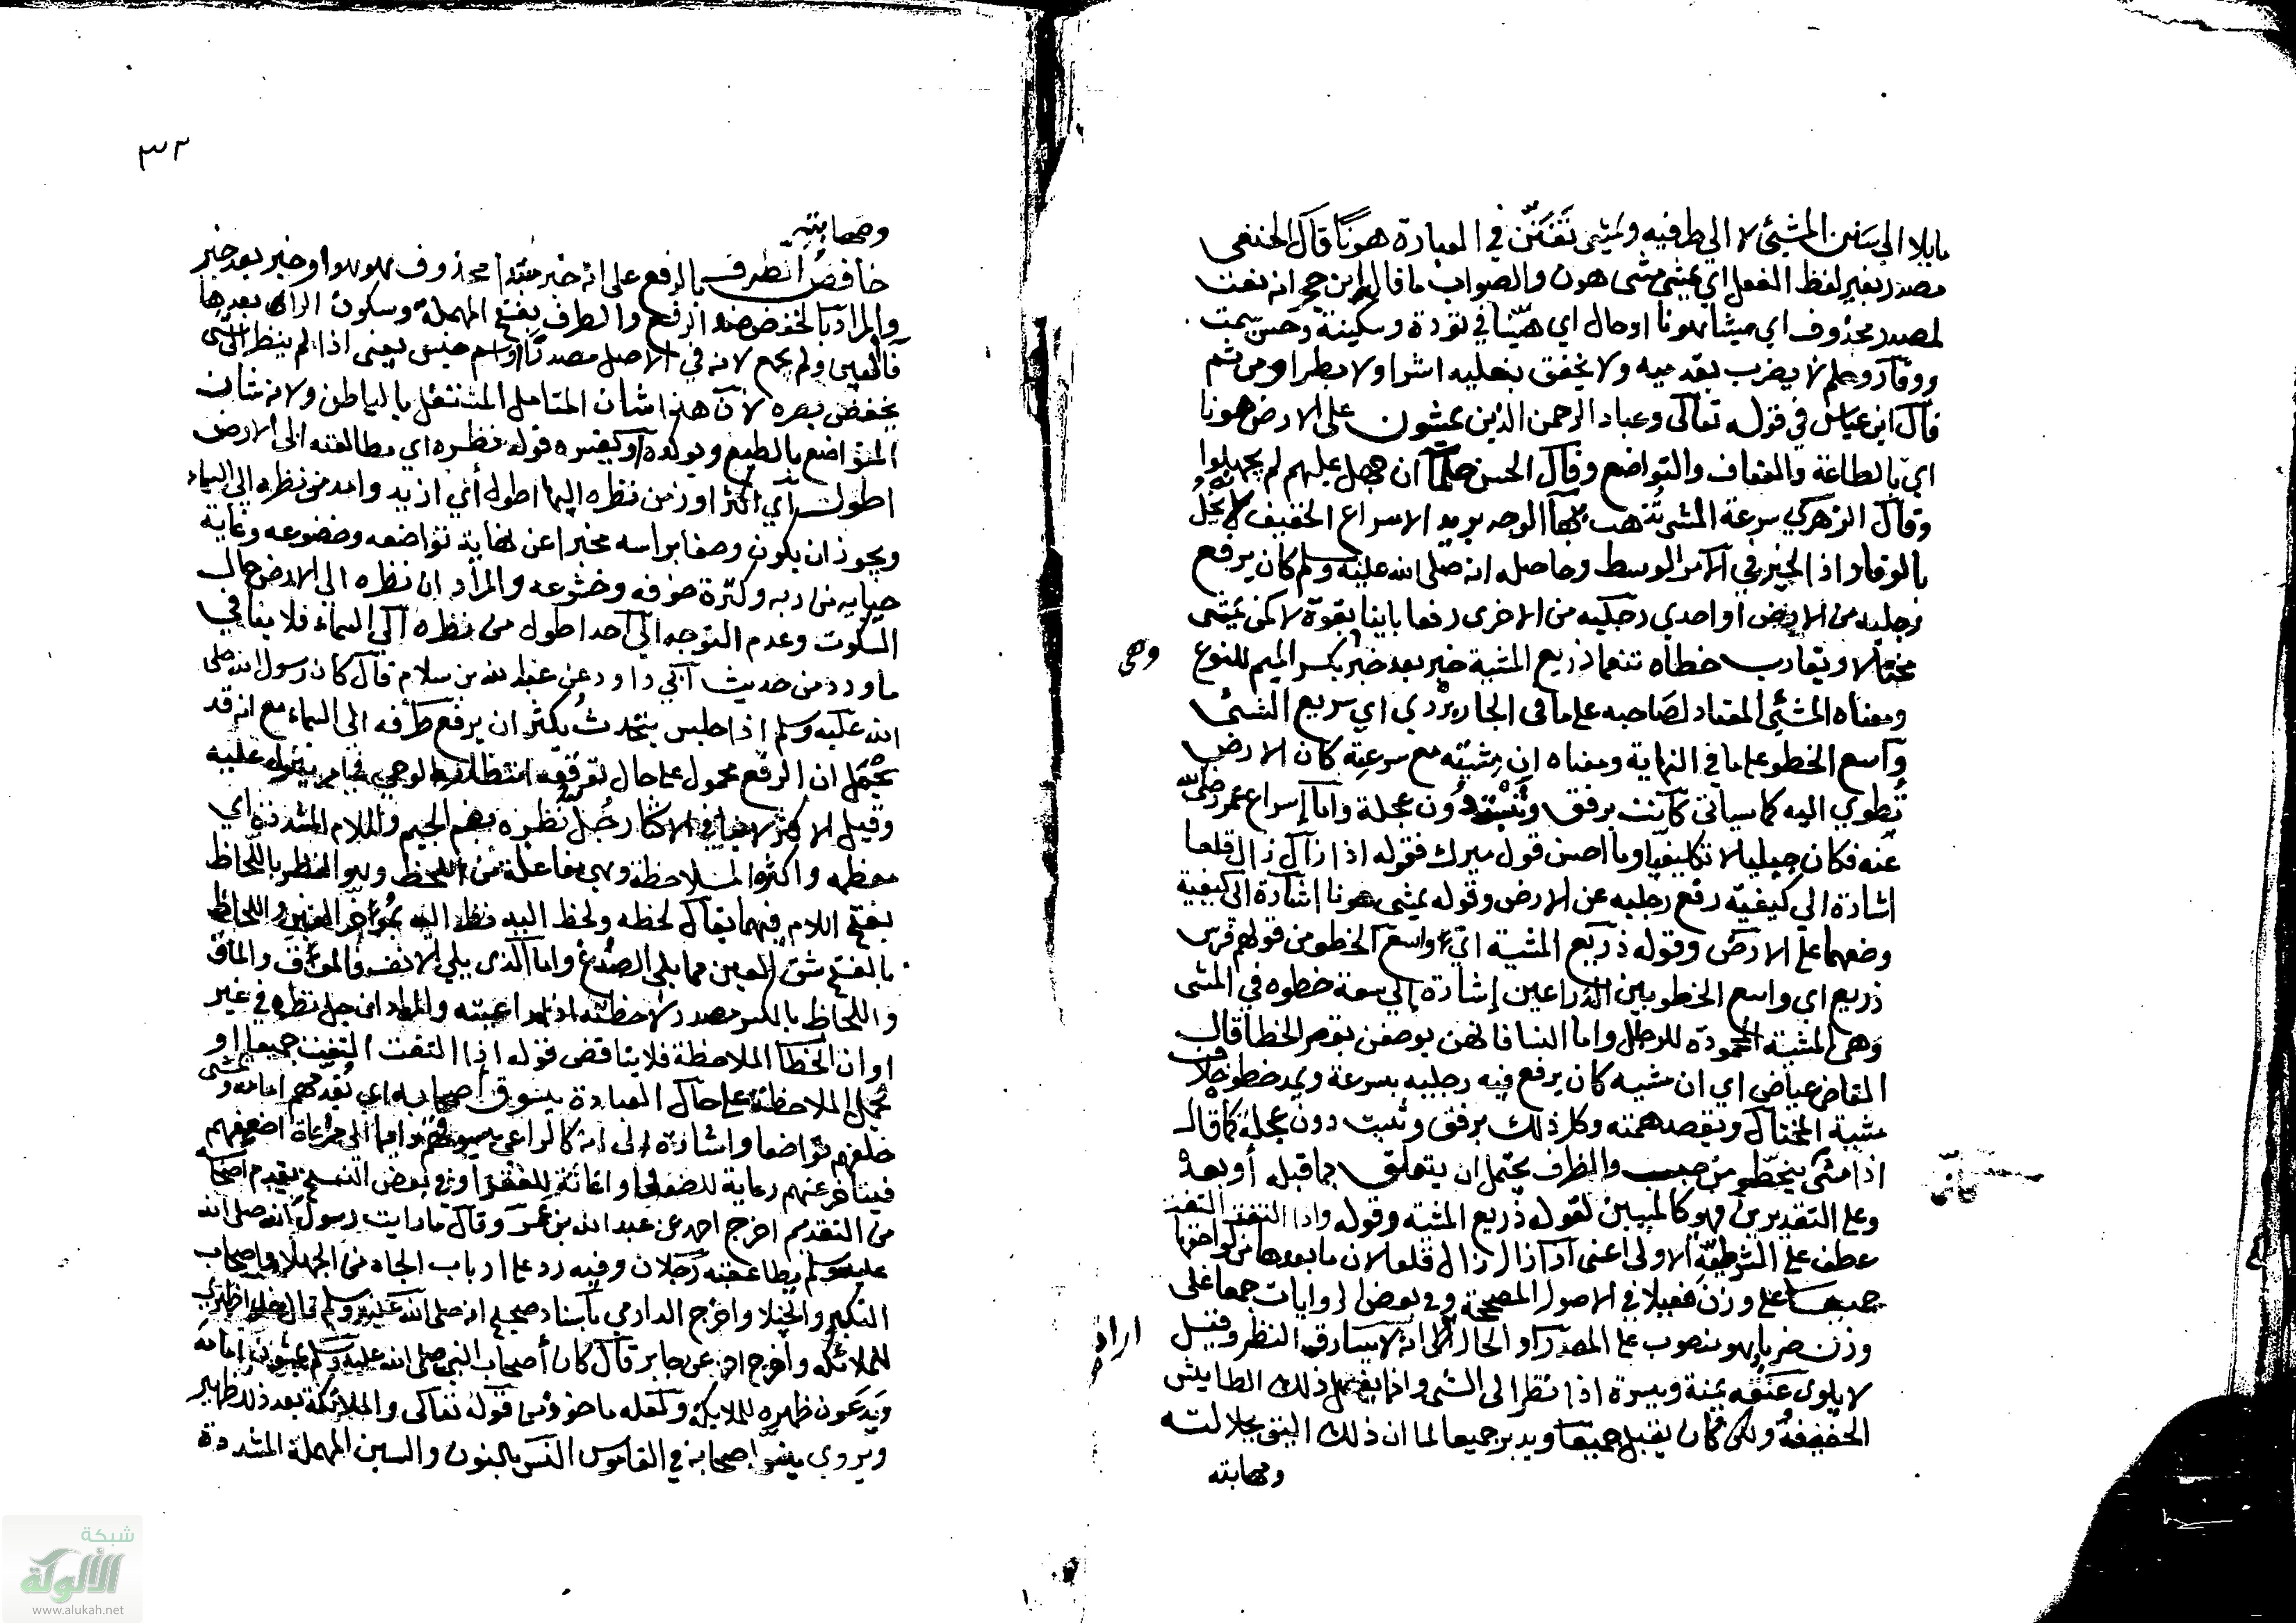 مايلا الي سنن المشئ لا الي طرفيه ويمشي تفنن في العبارة هونا قال الحنفي
مصدر بغير لفظ الفعل اي يمشي مشى هون والصواب ما قاله ابن حجر انه نعت
لمصدر محذوف اي مشيا هونا او حال اي هينا في تؤدة وسكينة وحسن سمت
ووقار وحلم لا يضرب بقدميه ولا يخفق بنعليه اشرا ولا بطرا ومن ثم
قال ابن عباس في قوله تعالى وعباد الرحمن الذين يمشون على الارض هونا
اي بالطاعة والعفاف والتواضع وقال الحسن حلما ان جهل عليهم لم يجهلوا
وقال الزهري سرعة المشي تذهب بهاء الوجه يريد الاسراع الخفيف لانه يخل
بالوقار اذ الخير في الامر الوسط وحاصله انه صلى الله عليه وسلم كان يرفع
رجليه من الارض او احدي رجليه من الاخرى رفعا باينا بقوة لا كمن يمشي
مختالا ويقارب خطاه تنعما ذريع المشية خبر بعد خبر بكسر الميم للنوع
وهي
ومعناه المشئ المعتاد لصاحبه على ما في الجاربردي اي سريع المشئ
واسع الخطو على ما في النهاية ومعناه ان مشيته مع سرعته كان الارض
تطوي اليه كما سياتي كانت برفق وتثبت دون عجلة واما اسراع عمر رضي الله
عنه فكان جبليا لا تكليفيا وما احسن قول ميرك فقوله اذا زال زال قلعا
اشارة الي كيفية رفع رجليه عن الارض وقوله يمشي هونا اشارة الى كيفية
وضعهما على الارض وقوله ذريع المشية اي واسع الخطو من قولهم فرس
ذريع اي واسع الخطو بين الذراعين إشارة إلي سعة خطوه في المشى
وهي المشية المحمودة للرجال واما النسا فانهن يوصفن بقصر الخطا قال
القاضي عياض اي ان مشيه كان يرفع فيه رجليه بسرعة ويمد خطوه خلاف
مشية المختال ويقصد همته وكل ذلك برفق وتثبت دون عجلة كما قال
اذا مشى ينحط من صبب والظرف يحتمل ان يتعلق بما قبله أو بعده
كانما
وعلى التقديرين فهو كالمبين لقوله ذريع المشية وقوله واذا التفت التفت
عطف على الشرطية الاولى اعنى اذا زال زال قلعا لان ما بعدها من لواحقها
جميعا على وزن فعيلا في الاصول المصححة وفي بعض الروايات جمعا على
وزن ضربا وهو منصوب على المصدر او الحال اي انه لا يسارق النظر وقيل
اراد
لا يلوى عنقه يمنة ويسرة اذا نظر الى الشي وانما يفعل ذلك الطايش
الخفيف ولكن كان يقبل جميعا ويدبر جميعا لما ان ذلك اليق بجلالته
ومهابته
٣٢
ومهابته
خافض الطرف بالرفع على انه خبر مبتدا محذوف هو هو او خبر بعد خبر
والمراد بالخفض ضد الرفع والطرف بفتح المهملة وسكون الراء بعدها
فاء العين ولم يجمع لانه في الاصل مصدر او اسم جنس يعنى اذا لم ينظر الى شى
يخفض بصره لان هذا شان المتامل المشتغل بالباطن ولانه شان
المتواضع بالطبع ويؤكده او يفسره قوله نظره اي مطالعته الى الارض
اطول اي اكثر او زمن نظره اليها اطول أي ازيد وامد من نظره الي السماء
ويجوز ان يكون وصفا براسه مخبرا عن نهاية تواضعه وخضوعه وغاية
حيايه من ربه وكثرة خوفه وخشوعه والمراد ان نظره الى الارض حال
السكوت وعدم التوجه الى احد اطول من نظره الي السماء فلا ينافي
ما ورد من حديث ابي داود عن عبد الله بن سلام قال كان رسول الله صلى
الله عليه وسلم اذا جلس يتحدث يكثر ان يرفع طرفه الى السماء مع انه قد
يحتمل ان الرفع محمول على حال توقعه انتظار الوحي في امر ينزل عليه
وقيل الاكثر لا ينافي الاكثار جل نظره بضم الجيم واللام المشددة اي
معظمه واكثره الملاحظة وهي مفاعلة من اللحظ وهو النظر باللحاظ
بفتح اللام فيهما يقال لحظه ولحظ اليه نظر اليه بمؤخر العين واللحاظ
بالفتح شق العين مما يلي الصدغ واما الذي يلي الانف فالموق والماق
واللحاظ بالكسر مصدر لاحظته اذا راعيته والمراد ان جل نظره في غير
اوان الخطاب الملاحظة فلا يناقض قوله اذا التفت التفت جميعا او
تحمل الملاحظة على حال العبادة يسوق أصحابه اي يقدمهم امامه ويمشى
خلفهم تواضعا واشارة الى انه كالراعي يسوقهم وايما الى مراعاة اضعفهم
فيتاخر عنهم رعاية للضعفا واغاثة للفقرا وفي بعض النسخ يقدم اصحابه
من التقديم اخرج احمد عن عبد الله بن عمرو قال ما رايت رسول الله صلى الله
عليه وسلم يطا عقبه رجلان وفيه رد على ارباب الجاه من الجهلا واصحاب
التكبر والخيلا واخرج الدارمي باسناد صحيح انه صلى الله عليه وسلم قال خلوا ظهرى
للملائكة وأخرج احمد عن جابر قال كان أصحاب النبي صلى الله عليه وسلم يمشون امامه
ويدعون ظهره للملايكة ولعله ماخوذ من قوله تعالى والملائكة بعد ذلك ظهير
ويروى ينس اصحابه في القاموس النس بالنون والسين المهملة المشددة
شبكة
الألوكة
www.alukah.net